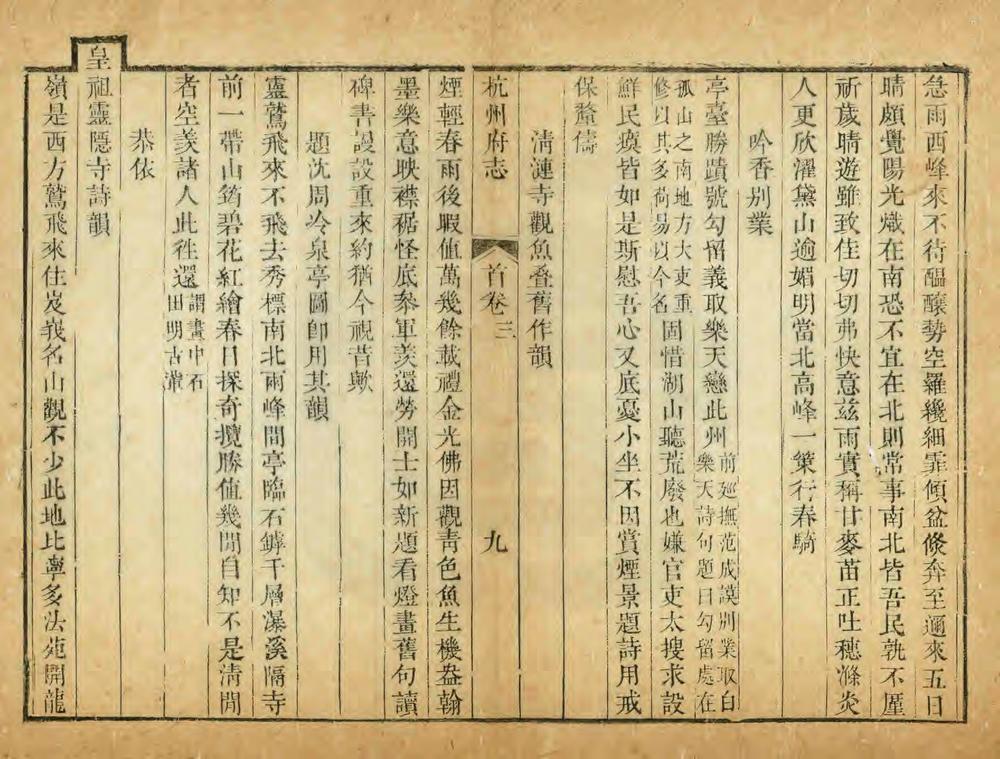 急雨西峰來不待醞釀勢空羅纔細霏傾盆倐奔至邇來五日
晴頗覺陽光熾在南恐不宜在北則常事南北皆吾民孰不廑
祈歲晴遊雖致佳切切弗快意兹雨實稱甘麥苗正吐穗滌炎
人更欣濯黛山逾媚明當北高峰一策行春騎
吟香别業
亭臺勝蹟號勾留義取樂天戀此州前廵撫范成謨别業取白樂天詩句題曰勾留處在
孤山之南地方大吏重修以其多荷易以今名固惜湖山聽荒廢也嫌官吏太搜求設
鮮民瘼皆如是斯慰吾心又底憂小坐不因賞煙景題詩用戒
保釐儔
淸漣寺觀魚叠舊作韻
杭州府志 首卷三 九
煙輕春雨後暇值萬幾餘載禮金光佛因觀靑色魚生機盎翰
墨樂意映襟裾怪底叅軍羡還勞開士如新題看燈畫舊句讀
碑書謾設重來約猶今視昔歟
題沈周冷泉亭圖卽用其韻
靈鷲飛來不飛去秀標南北兩峰間亭臨石罅千層瀑溪隔寺
前一帶山筠碧花紅繪春日探奇攬勝值幾閒自知不是淸閒
者空羡諸人此徃還謂畫中石田明古輩
恭依
皇祖靈隱寺詩韻
嶺是西方鷲飛來住岌峩名山觀不少此地比寧多法苑開龍